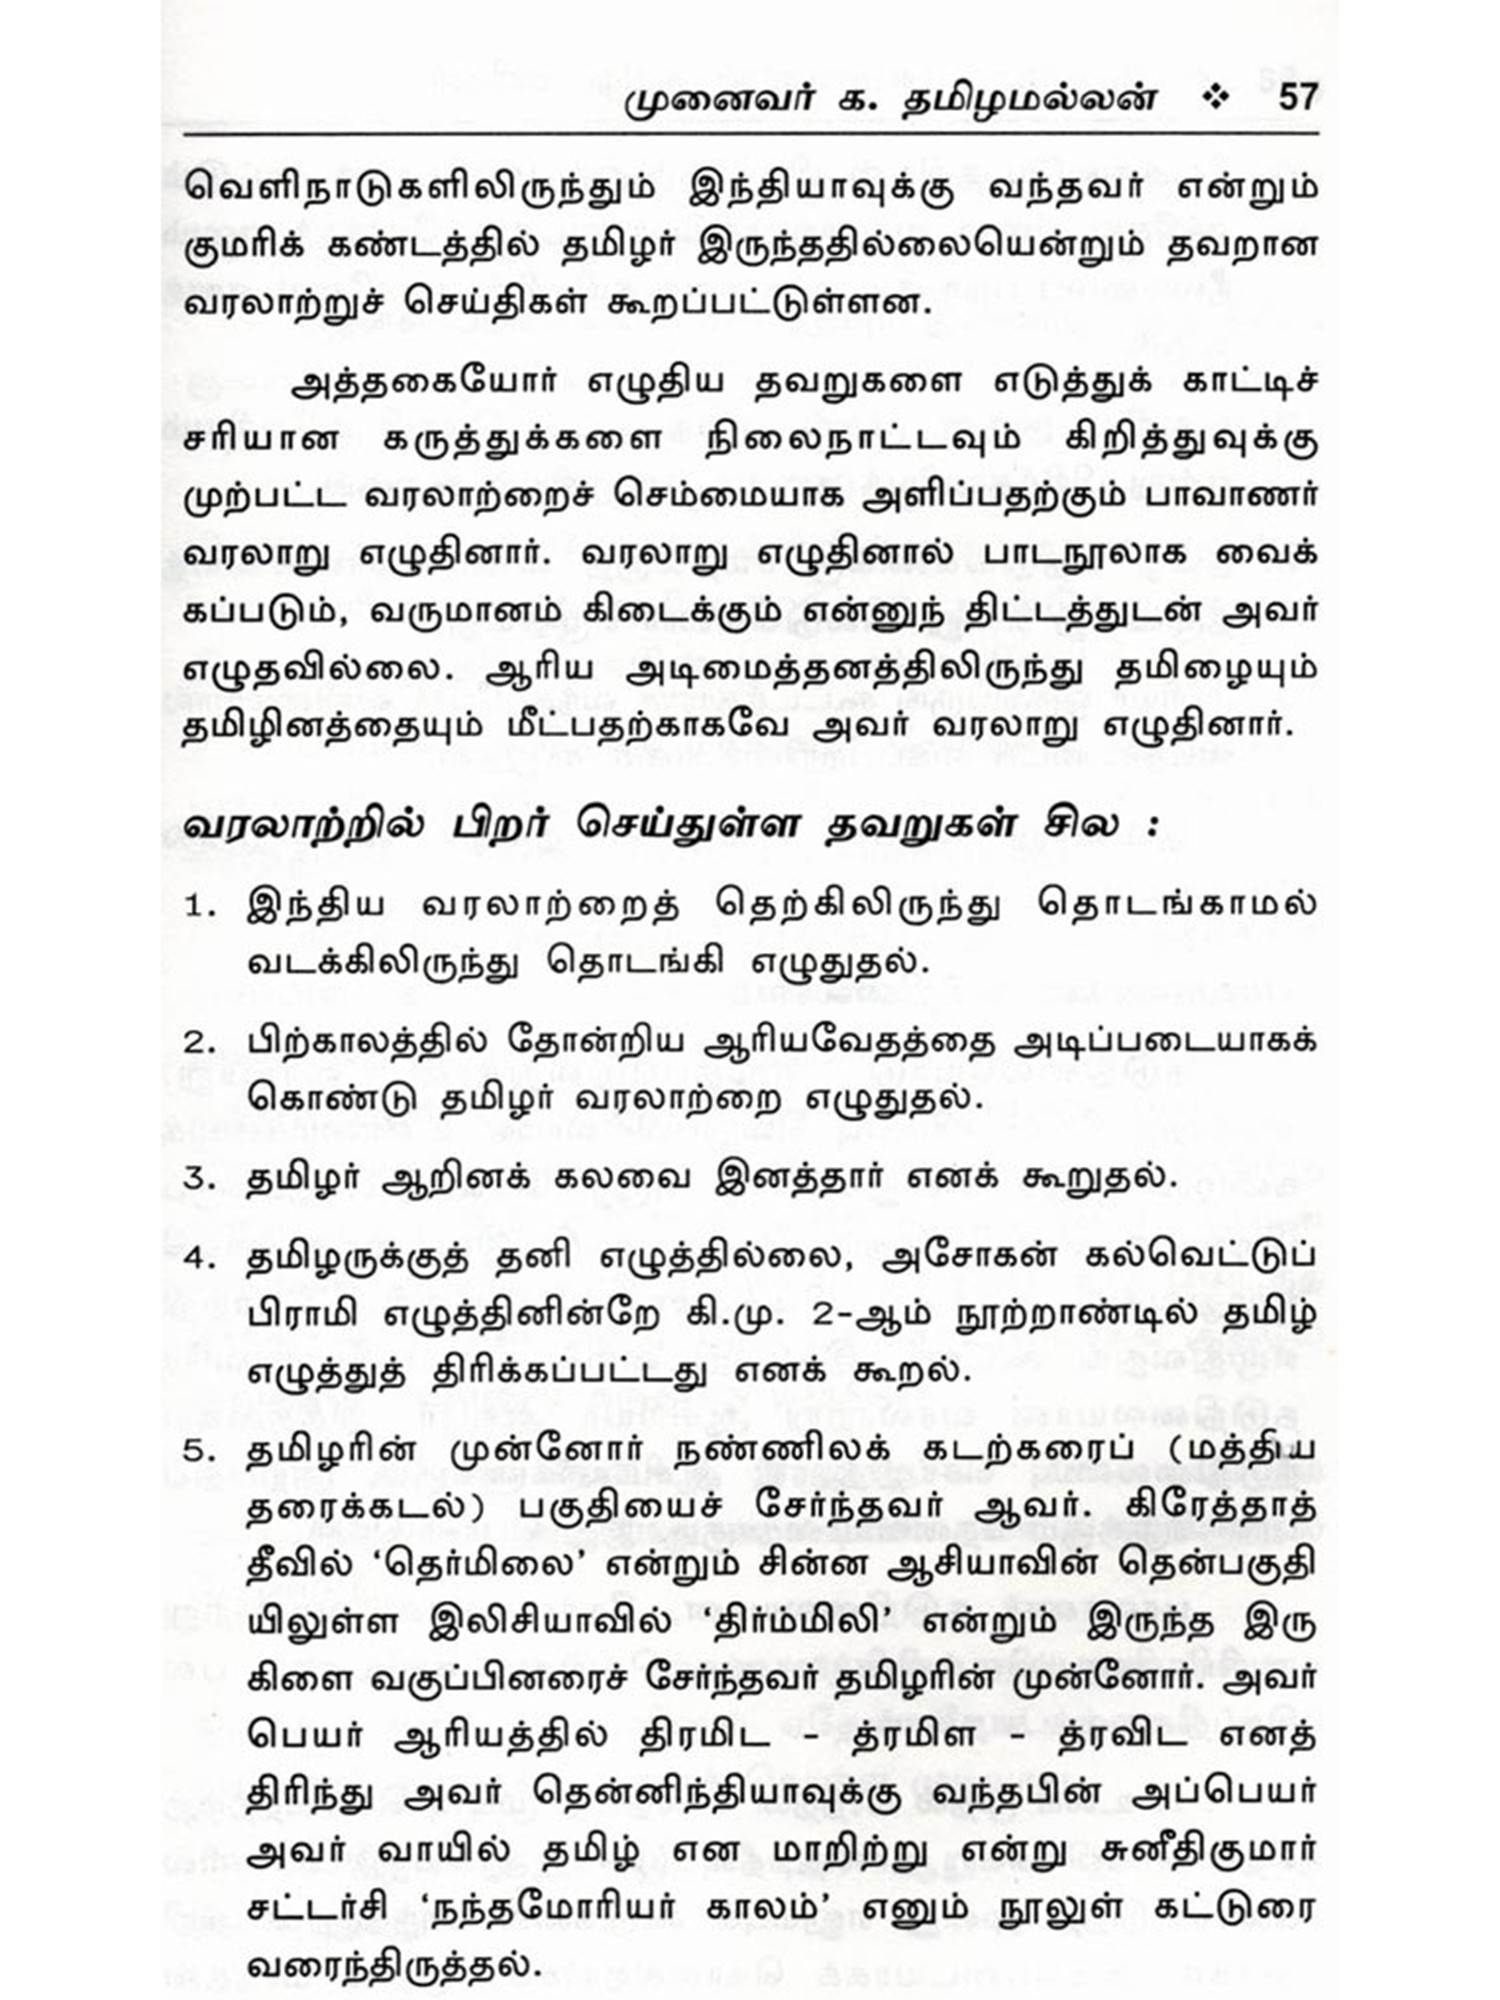 முனைவர் க. தமிழமல்லன் ❖ 57
வெளிநாடுகளிலிருந்தும் இந்தியாவுக்கு வந்தவர் என்றும்
குமரிக் கண்டத்தில் தமிழர் இருந்ததில்லையென்றும் தவறான
வரலாற்றுச் செய்திகள் கூறப்பட்டுள்ளன.
அத்தகையோர் எழுதிய தவறுகளை எடுத்துக் காட்டிச்
சரியான கருத்துக்களை நிலைநாட்டவும் கிறித்துவுக்கு
முற்பட்ட வரலாற்றைச் செம்மையாக அளிப்பதற்கும் பாவாணர்
வரலாறு எழுதினார். வரலாறு எழுதினால் பாடநூலாக வைக்
கப்படும், வருமானம் கிடைக்கும் என்னுந் திட்டத்துடன் அவர்
எழுதவில்லை. ஆரிய அடிமைத்தனத்திலிருந்து தமிழையும்
தமிழினத்தையும் மீட்பதற்காகவே அவர் வரலாறு எழுதினார்.
வரலாற்றில் பிறர் செய்துள்ள தவறுகள் சில :
1. இந்திய வரலாற்றைத் தெற்கிலிருந்து தொடங்காமல்
வடக்கிலிருந்து தொடங்கி எழுதுதல்.
2. பிற்காலத்தில் தோன்றிய ஆரியவேதத்தை அடிப்படையாகக்
கொண்டு தமிழர் வரலாற்றை எழுதுதல்.
3. தமிழர் ஆறினக் கலவை இனத்தார் எனக் கூறுதல்.
4. தமிழருக்குத் தனி எழுத்தில்லை, அசோகன் கல்வெட்டுப்
பிராமி எழுத்தினின்றே கி.மு. 2-ஆம் நூற்றாண்டில் தமிழ்
எழுத்துத் திரிக்கப்பட்டது எனக் கூறல்.
5. தமிழரின் முன்னோர் நண்ணிலக் கடற்கரைப் (மத்திய
தரைக்கடல்) பகுதியைச் சேர்ந்தவர் ஆவர். கிரேத்தாத்
தீவில் ‘தெர்மிலை’ என்றும் சின்ன ஆசியாவின் தென்பகுதி
யிலுள்ள இலிசியாவில் ‘திர்ம்மிலி’ என்றும் இருந்த இரு
கிளை வகுப்பினரைச் சேர்ந்தவர் தமிழரின் முன்னோர். அவர்
பெயர் ஆரியத்தில் திரமிட – த்ரமிள – த்ரவிட எனத்
திரிந்து அவர் தென்னிந்தியாவுக்கு வந்தபின் அப்பெயர்
அவர் வாயில் தமிழ் என மாறிற்று என்று சுனீதிகுமார்
சட்டர்சி ‘நந்தமோரியர் காலம்’ எனும் நூலுள் கட்டுரை
வரைந்திருத்தல்.